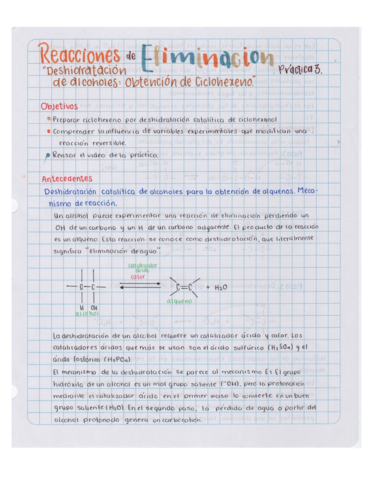 Reacciones de Eliminacion
Práctica 3.
"Deshidratación
de alcoholes: Obtención de Ciclohexeno."
Objetivos
Preparar ciclohexeno por deshidratación catalítica de ciclohexanol
Comprender la influencia de variables experimentales que modifican una
reacción reversible.
Revisar el video de la práctica.
Antecedentes
Deshidratación catalítica de alcoholes para la obtención de alquenos. Meca-
nismo de reacción.
Un alcohol puede experimentar una reacción de eliminación perdiendo un
OH de un carbono y un H de un carbono adyacente. El producto de la reacción
es un alqueno. Esta reacción se conoce como deshidratación, que literalmente
significa "eliminación de agua"
catalizador
ácido
calor
-C-C-
C=C
+ H₂O
H OH
alcohol
alqueno
La deshidratación de un alcohol requiere un catalizador ácido y calor. Los
catalizadores ácidos que más se usan son el ácido sulfúrico (H₂SO₄) y el
ácido fosfórico (H₃PO₄).
El mecanismo de la deshidratación se parece al mecanismo E1 El grupo
hidróxilo de un alcohol es un mal grupo saliente (⁻OH), pero la protonación
mediante el catalizador ácido en el primer paso lo convierte en un buen
grupo saliente (H₂O). En el segundo paso, la pérdida de agua a partir del
alcohol protonado genera un carbocatión.